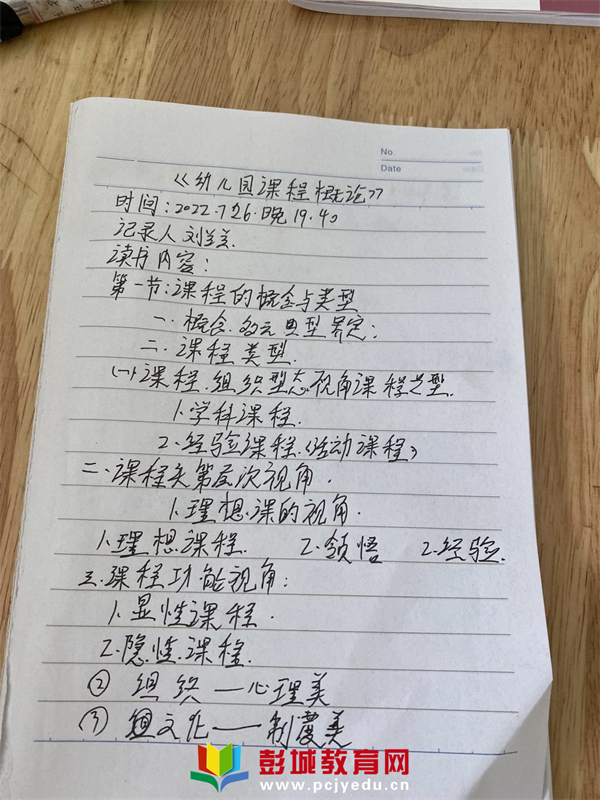 No
Date
《幼儿园课程概论》
时间:2022.7.26.晚19.40
记录人刘
读书内容:
第一节:课程的概念与类型
一.概念.的典型界定:
二.课程类型.
(一)课程.组织型态视角课程类型.
1.学科课程.
2.经验课程.(活动课程)
二.课程决策层次视角.
1.理想课的视角.
1.理想课程. 2.领悟 2.经验.
三.课程功能视角:
1.显性课程.
2.隐性课程.
② 组织——心理美
③ 文化——制度美
彭城教育网
www.pcjyedu.cn